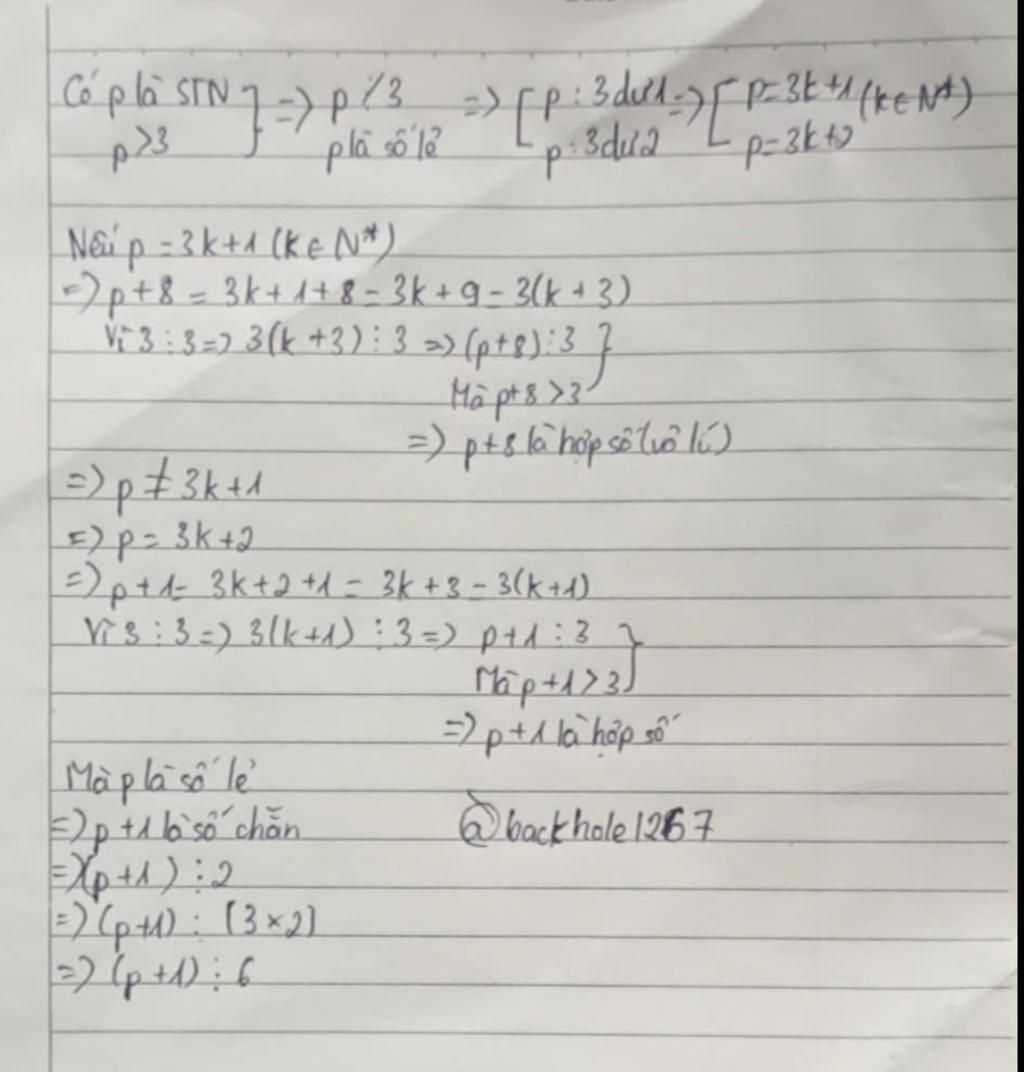 Có p là STN } => p ⋮̸ 3 => [ p : 3 dư 1 => [ p = 3k+1 (k ∈ N*)
p > 3 p là số lẻ p : 3 dư 2 p = 3k+2
Nếu p = 3k+1 (k ∈ N*)
=> p+8 = 3k+1+8 = 3k+9 = 3(k+3)
Vì 3 ⋮ 3 => 3(k+3) ⋮ 3 => (p+8) ⋮ 3 }
Mà p+8 > 3
=> p+8 là hợp số (vô lí)
=> p ≠ 3k+1
=> p = 3k+2
=> p+1 = 3k+2+1 = 3k+3 = 3(k+1)
Vì 3 ⋮ 3 => 3(k+1) ⋮ 3 => p+1 ⋮ 3 }
Mà p+1 > 3
=> p+1 là hợp số
Mà p là số lẻ
=> p+1 là số chẵn @backhole1267
=> (p+1) ⋮ 2
=> (p+1) ⋮ (3×2)
=> (p+1) ⋮ 6